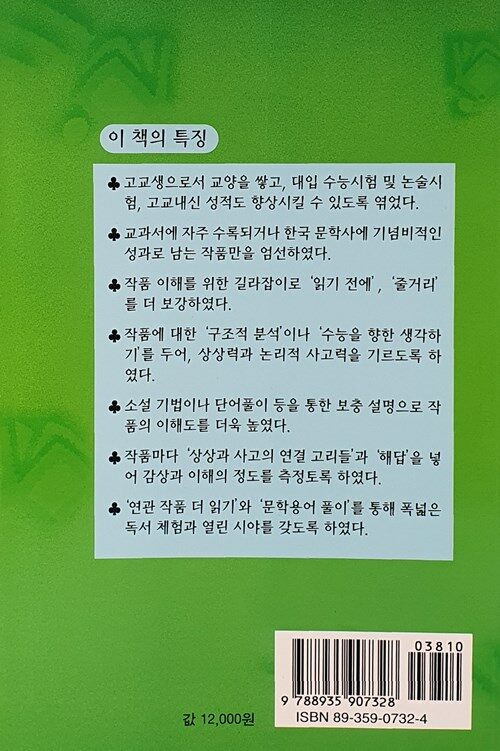 이 책의 특징
♣고교생으로서 교양을 쌓고, 대입 수능시험 및 논술시
험, 고교내신 성적도 향상시킬 수 있도록 엮었다.
♣교과서에 자주 수록되거나 한국 문학사에 기념비적인
성과로 남는 작품만을 엄선하였다.
♣작품 이해를 위한 길라잡이로 '읽기 전에', '줄거리'
를 더 보강하였다.
♣작품에 대한 '구조적 분석'이나 '수능을 향한 생각하
기'를 두어, 상상력과 논리적 사고력을 기르도록 하
였다.
♣소설 기법이나 단어풀이 등을 통한 보충 설명으로 작
품의 이해도를 더욱 높였다.
♣작품마다 '상상과 사고의 연결 고리들'과 '해답'을 넣
어 감상과 이해의 정도를 측정토록 하였다.
♣'연관 작품 더 읽기'와 '문학용어 풀이'를 통해 폭넓은
독서 체험과 열린 시야를 갖도록 하였다.
03810
9 788935 907328
값 12,000원
ISBN 89-359-0732-4